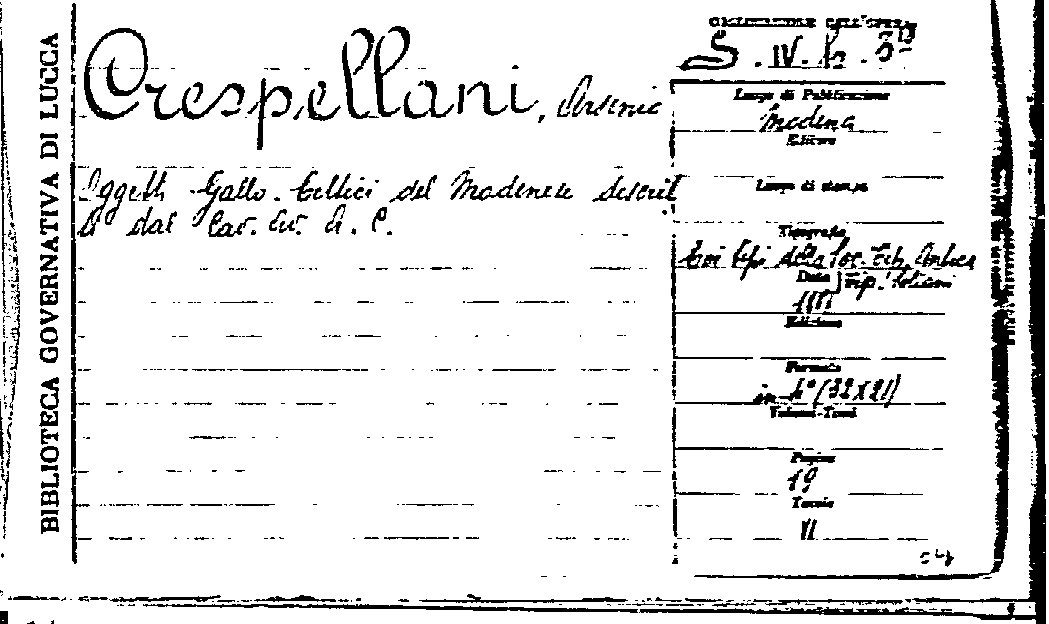 BIBLIOTECA GOVERNATIVA DI LUCCA
Crespellani, Arsenio
Oggetti Gallo-Celtici del Modenese descrit
ti dal Cav. Av. A. C.
COLLOCAZIONE DELL'OPERA
S. IV. h.
Luogo di Pubblicazione
Modena
Editore
Luogo di stampa
Tipografia
Coi tipi della Soc. Tip. Antica
Tip. Soliani
Data
Edizione
Formato
in 4° (32x21)
Volumi-Tomi
Pagine
19
Tavole
VI